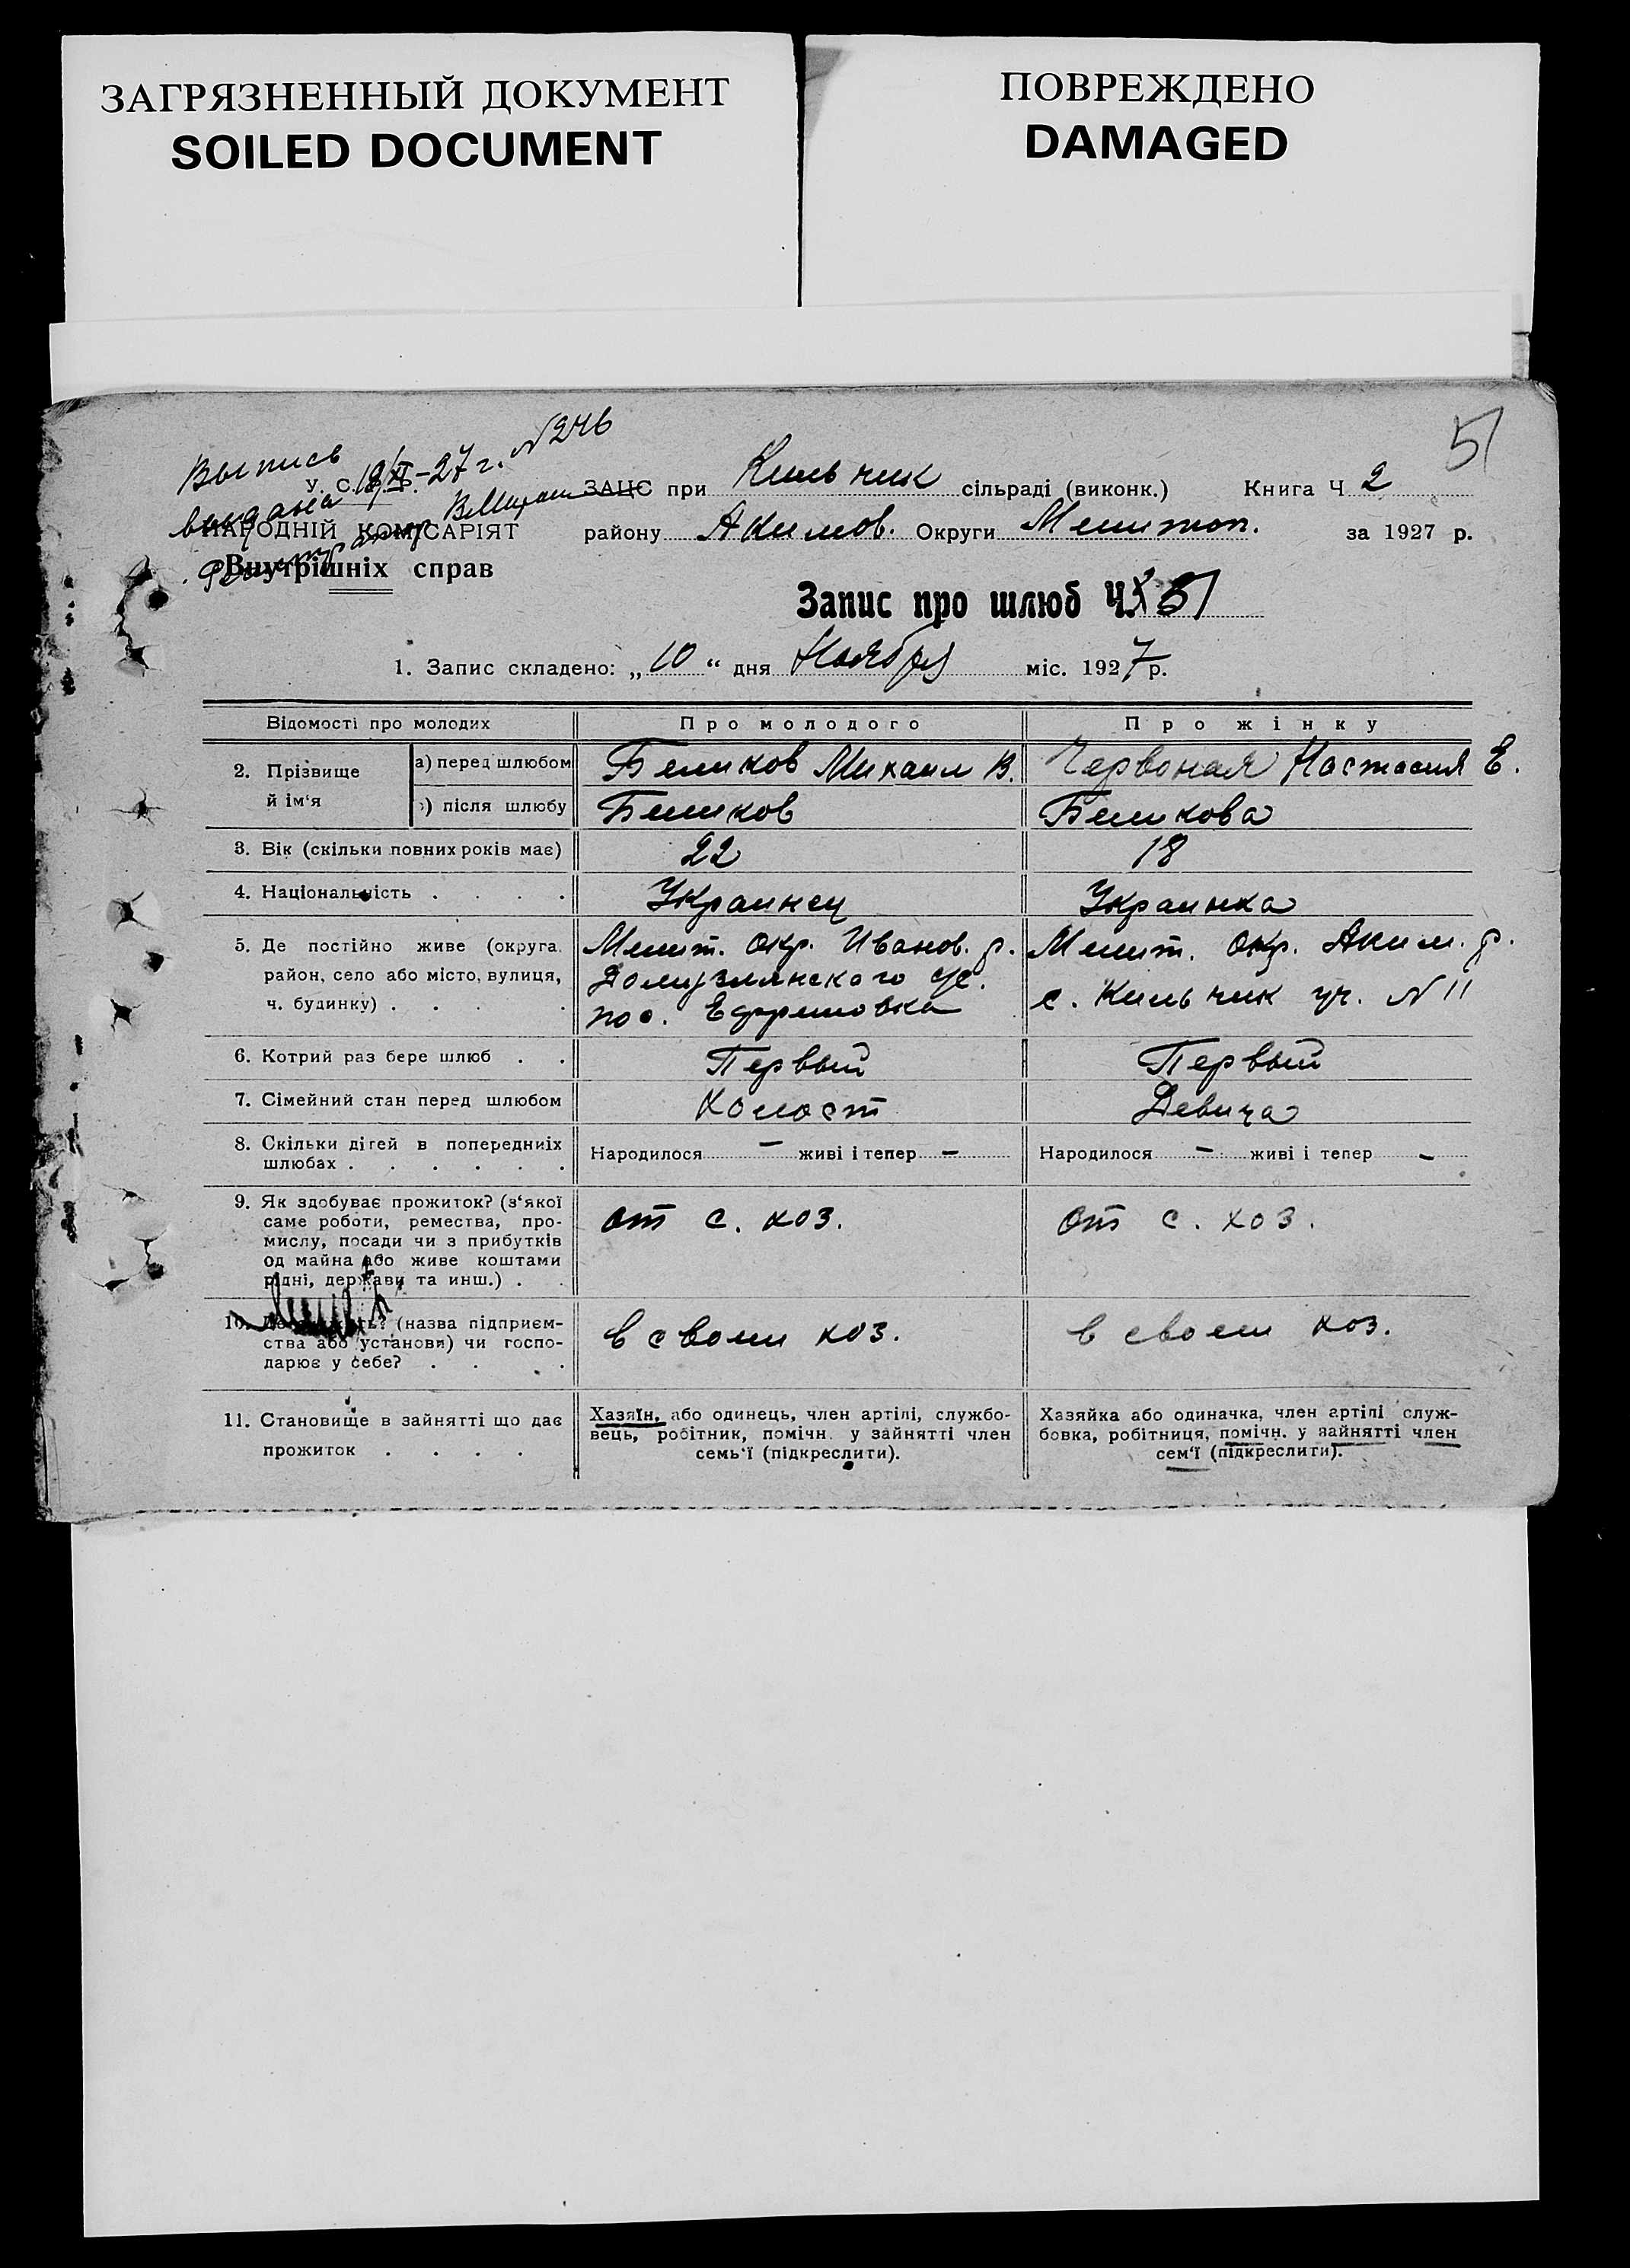 ЗАГРЯЗНЕННЫЙ ДОКУМЕНТ
SOILED DOCUMENT
ПОВРЕЖДЕНО
DAMAGED
51
Выпись
выдана 19/XI-27 г. N 246
У. С.
НАРОДНІЙ КОМІСАРІЯТ
Внутрішніх справ
ЗАЦС при Кильчик сільраді (виконк.) Книга Ч 2
району Акимов. Округи Мелитоп. за 1927 р.
Запис про шлюб Ч. 51
1. Запис складено: „10“ дня Ноября міс. 1927 р.
Відомості про молодих
Про молодого
Про жінку
2. Прізвище й ім‘я
а) перед шлюбом
Беликов Михаил В.
Червоная Настасия Е.
) після шлюбу
Беликов
Беликова
3. Вік (скільки повних років має)
22
18
4. Національність . . . .
Украинец
Украинка
5. Де постійно живе (округа,
район, село або місто, вулиця,
ч. будинку) . . . .
Мелит. окр. Иванов. р.
Домузлянского с/с.
пос. Ефремовка
Мелит. окр. Аким. р.
с. Кильчик уч. N 11
6. Котрий раз бере шлюб . .
Первый
Первый
7. Сімейний стан перед шлюбом
Холост
Девица
8. Скільки дітей в попередниіх
шлюбах . . . . . .
Народилося – живі і тепер –
Народилося – живі і тепер –
9. Як здобуває прожиток? (з‘якої
саме роботи, ремества, про-
мислу, посади чи з прибутків
од майна або живе коштами
рідні, держави та инш.) . .
от с. хоз.
от с. хоз.
10. (назва підприєм-
ства або установи) чи госпо-
дарює у себе? . . .
в своем хоз.
в своем хоз.
11. Становище в зайнятті що дає
прожиток . . . .
Хазяїн, або одинець, член артілі, службо-
вець, робітник, помічн. у зайнятті член
семь‘ї (підкреслити).
Хазяйка або одиначка, член артілі служ-
бовка, робітниця, помічн. у зайнятті член
сем‘ї (підкреслити).